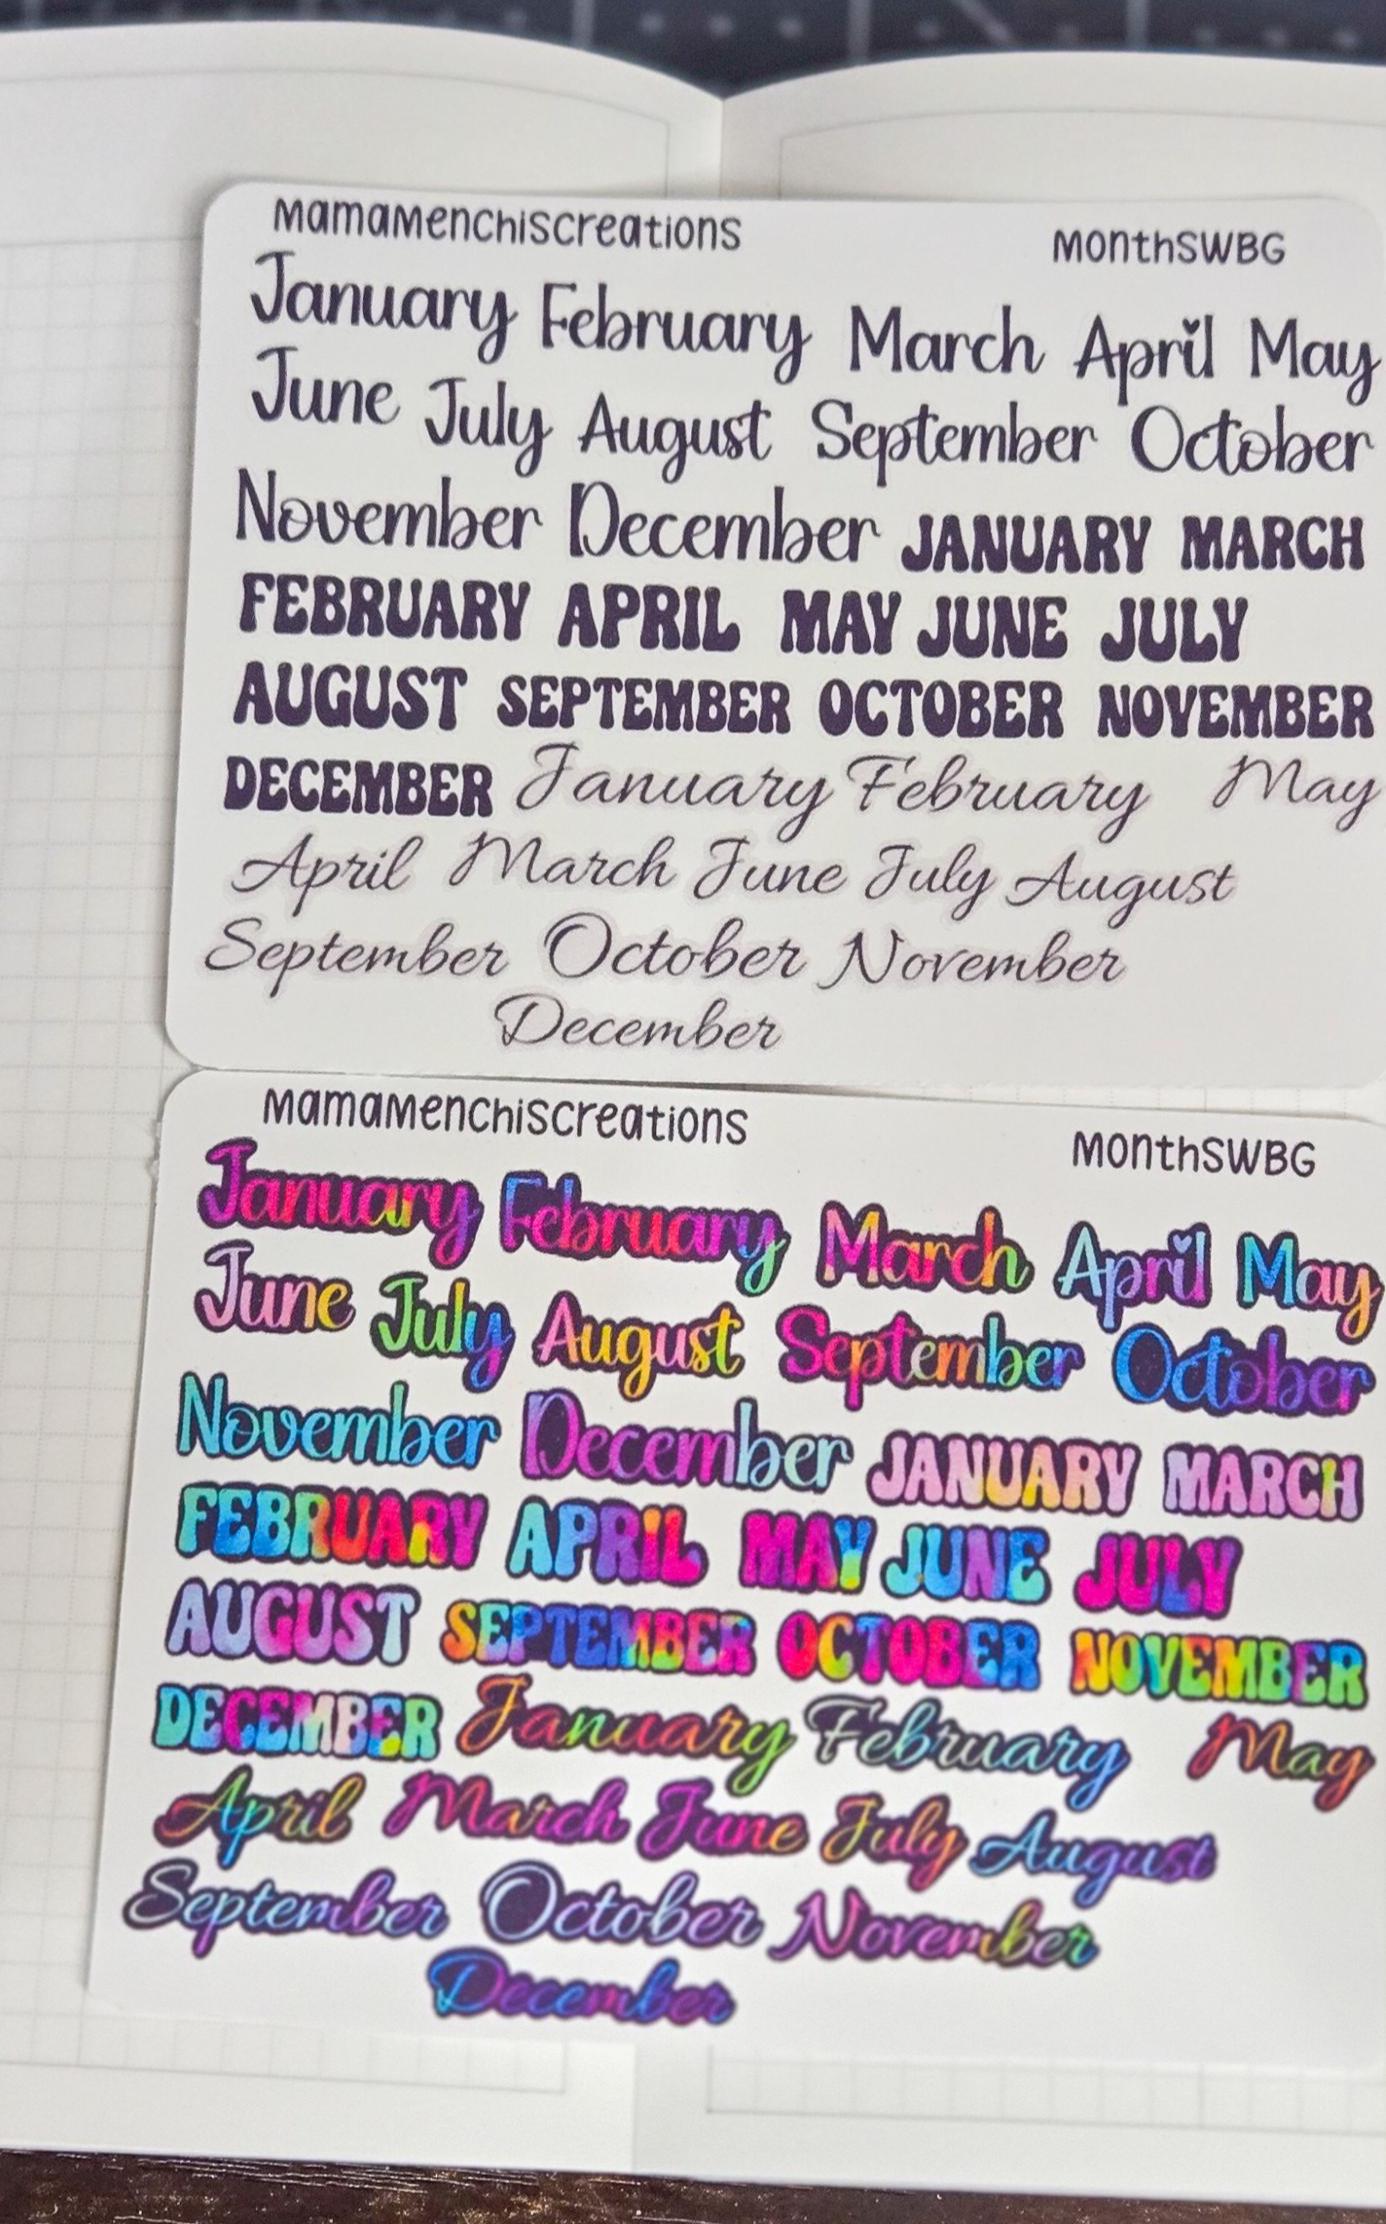 mamamenchiscreations monthSWBG
January February March April May
June July August September October
November December JANUARY MARCH
FEBRUARY APRIL MAY JUNE JULY
AUGUST SEPTEMBER OCTOBER NOVEMBER
DECEMBER January February May
April March June July August
September October November
December
mamamenchiscreations monthSWBG
January February March April May
June July August September October
November December JANUARY MARCH
FEBRUARY APRIL MAY JUNE JULY
AUGUST SEPTEMBER OCTOBER NOVEMBER
DECEMBER January February May
April March June July August
September October November
December